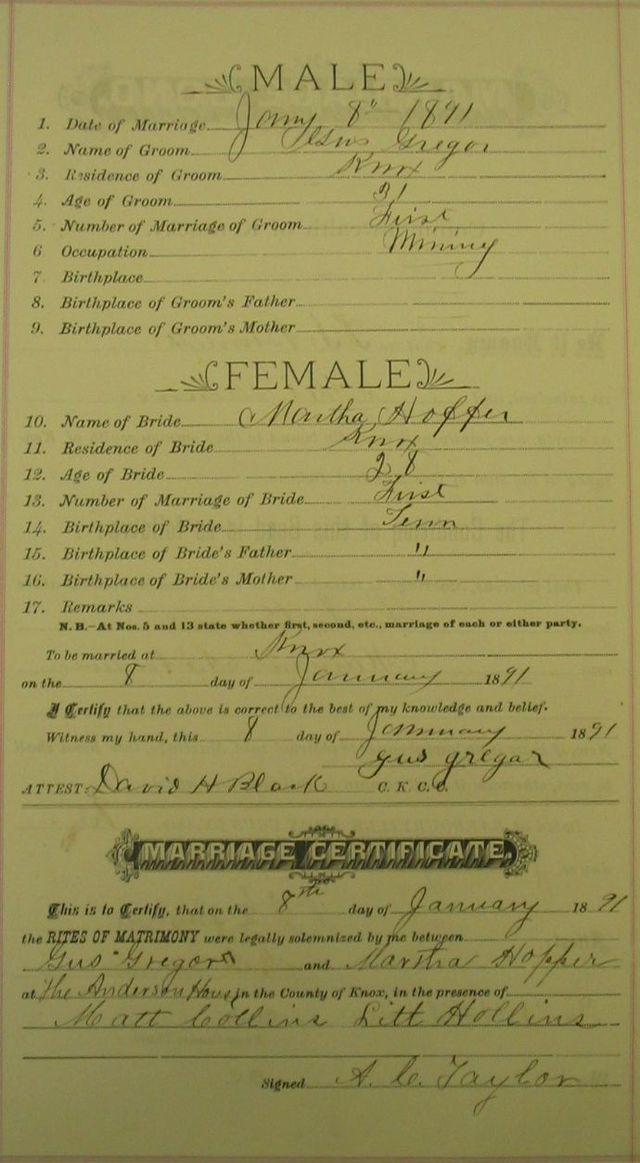 MALE
1. Date of Marriage Jany 8" 1891
2. Name of Groom Gregor
3. Residence of Groom Knox
4. Age of Groom 21
5. Number of Marriage of Groom First
6 Occupation Mining
7 Birthplace
8. Birthplace of Groom's Father
9. Birthplace of Groom's Mother
FEMALE
10. Name of Bride Martha Hopper
11. Residence of Bride Knox
12. Age of Bride 28
13. Number of Marriage of Bride First
14. Birthplace of Bride Tenn
15. Birthplace of Bride's Father "
16. Birthplace of Bride's Mother "
17. Remarks
N. B.—At Nos. 5 and 13 state whether first, second, etc., marriage of each or either party.
To be married at Knox
on the 8 day of January 1891
I Certify that the above is correct to the best of my knowledge and belief.
Witness my hand, this 8 day of January 1891
gus gregar
ATTEST: David H Black C. K. C. C.
MARRIAGE CERTIFICATE.
This is to Certify, that on the 8th day of January 1891
the RITES OF MATRIMONY were legally solemnized by me between
Gus Gregor and Martha Hopper
at The Anderson House in the County of Knox, in the presence of
Matt Collins Litt Hollins
Signed A. C. Taylor